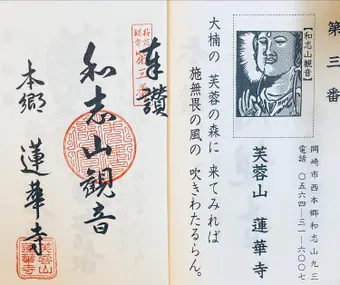 第三番
【和志山観音】
岡崎市西本郷和志山九三
電話 〇五六四―三一―六〇〇七
芙蓉山 蓮華寺
大楠の 芙蓉の森に 来てみれば
施無畏の風の 吹きわたるらん。
奉讃
和志山観音
本郷 蓮華寺
芙蓉山
蓮華寺